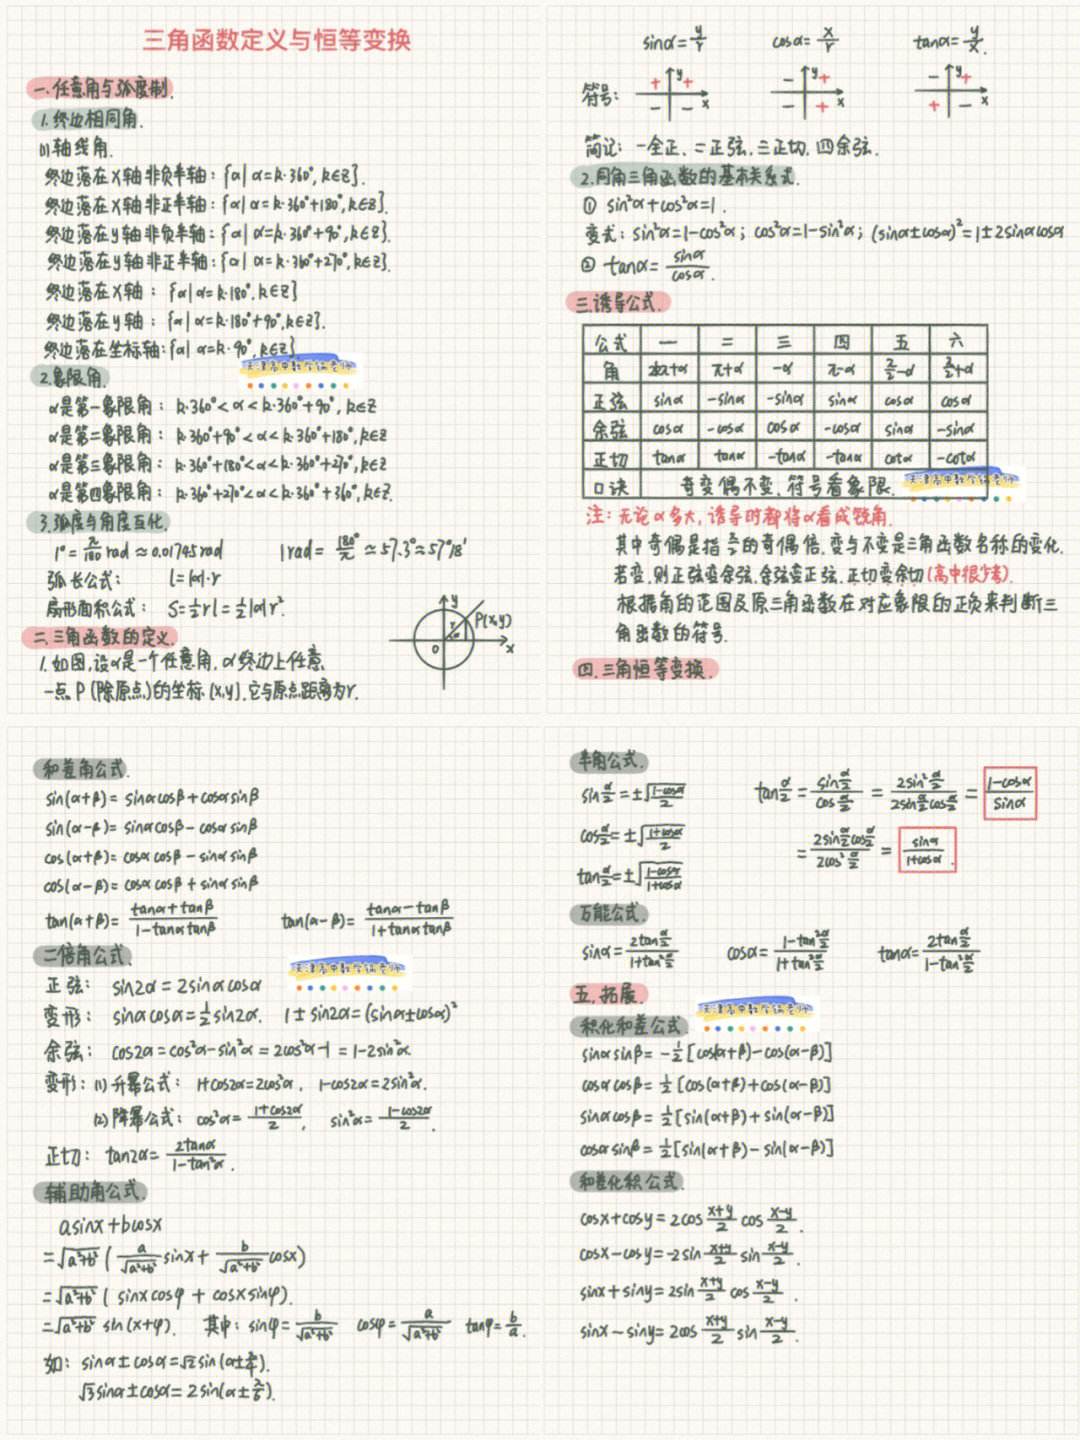 三角函数定义与恒等变换
一.任意角与弧度制.
1.终边相同角.
(1)轴线角.
终边落在x轴非负半轴:{α|α=k·360°,k∈Z}.
终边落在x轴非正半轴:{α|α=k·360°+180°,k∈Z}.
终边落在y轴非负半轴:{α|α=k·360°+90°,k∈Z}.
终边落在y轴非正半轴:{α|α=k·360°+270°,k∈Z}.
终边落在x轴:{α|α=k·180°,k∈Z}
终边落在y轴:{α|α=k·180°+90°,k∈Z}.
终边落在坐标轴:{α|α=k·90°,k∈Z}
2.象限角.
α是第一象限角:k·360°<α<k·360°+90°,k∈Z
α是第二象限角:k·360°+90°<α<k·360°+180°,k∈Z
α是第三象限角:k·360°+180°<α<k·360°+270°,k∈Z
α是第四象限角:k·360°+270°<α<k·360°+360°,k∈Z.
3.弧度与角度互化.
1°=π/180 rad≈0.01745rad 1rad=180°/π≈57.3°≈57°18′
弧长公式: l=|α|·r
扇形面积公式: S=1/2rl=1/2|α|r².
二.三角函数的定义.
1.如图,设α是一个任意角,α终边上任意
一点P(除原点)的坐标(x,y),它与原点距离为r.
y
P(x,y)
r
α
O
x
sinα=y/r cosα=x/r tanα=y/x.
符号: + + - - y x - + - + y x - + + - y x
简记:一全正、二正弦,三正切,四余弦.
2.同角三角函数的基本关系式.
① sin²α+cos²α=1.
变式:sin²α=1-cos²α; cos²α=1-sin²α; (sinα±cosα)²=1±2sinαcosα
② tanα=sinα/cosα.
三.诱导公式.
公式 一 二 三 四 五 六
角 2kπ+α π+α -α π-α π/2-α π/2+α
正弦 sinα -sinα -sinα sinα cosα cosα
余弦 cosα -cosα cosα -cosα sinα -sinα
正切 tanα tanα -tanα -tanα cotα -cotα
口诀 奇变偶不变,符号看象限.
注:无论α多大,诱导时都将α看成锐角.
其中奇偶是指π/2的奇偶倍.变与不变是三角函数名称的变化.
若变,则正弦变余弦,余弦变正弦,正切变余切(高中很少考).
根据角的范围及原三角函数在对应象限的正负来判断三
角函数的符号.
四.三角恒等变换.
和差角公式.
sin(α+β)=sinαcosβ+cosαsinβ
sin(α-β)=sinαcosβ-cosαsinβ
cos(α+β)=cosαcosβ-sinαsinβ
cos(α-β)=cosαcosβ+sinαsinβ
tan(α+β)=(tanα+tanβ)/(1-tanαtanβ) tan(α-β)=(tanα-tanβ)/(1+tanαtanβ)
二倍角公式.
正弦: sin2α=2sinαcosα
变形: sinαcosα=1/2sin2α. 1±sin2α=(sinα±cosα)²
余弦: cos2α=cos²α-sin²α=2cos²α-1=1-2sin²α
变形:(1)升幂公式: 1+cos2α=2cos²α, 1-cos2α=2sin²α.
(2)降幂公式: cos²α=(1+cos2α)/2, sin²α=(1-cos2α)/2.
正切: tan2α=2tanα/(1-tan²α).
辅助角公式.
asinx+bcosx
=√(a²+b²)(a/√(a²+b²)sinx+b/√(a²+b²)cosx)
=√(a²+b²)(sinxcosφ+cosxsinφ).
=√(a²+b²)sin(x+φ). 其中:sinφ=b/√(a²+b²) cosφ=a/√(a²+b²) tanφ=b/a.
如: sinα±cosα=√2sin(α±π/4).
√3sinα±cosα=2sin(α±π/6).
半角公式.
sinα/2=±√((1-cosα)/2) tanα/2=sin(α/2)/cos(α/2)=2sin²(α/2)/(2sin(α/2)cos(α/2))=(1-cosα)/sinα
cosα/2=±√((1+cosα)/2) =2sin(α/2)cos(α/2)/(2cos²(α/2))=sinα/(1+cosα).
tanα/2=±√((1-cosα)/(1+cosα))
万能公式.
sinα=2tan(α/2)/(1+tan²(α/2)) cosα=(1-tan²(α/2))/(1+tan²(α/2)) tanα=2tan(α/2)/(1-tan²(α/2))
五.拓展.
积化和差公式.
sinαsinβ=-1/2[cos(α+β)-cos(α-β)]
cosαcosβ=1/2[cos(α+β)+cos(α-β)]
sinαcosβ=1/2[sin(α+β)+sin(α-β)]
cosαsinβ=1/2[sin(α+β)-sin(α-β)]
和差化积公式.
cosx+cosy=2cos(x+y)/2 cos(x-y)/2.
cosx-cosy=-2sin(x+y)/2 sin(x-y)/2.
sinx+siny=2sin(x+y)/2 cos(x-y)/2.
sinx-siny=2cos(x+y)/2 sin(x-y)/2.